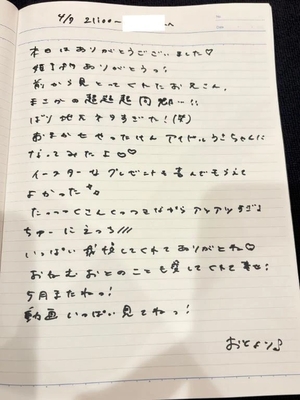 4/9 21:00〜 へ
本日はありがとうございました♡
頻了約ありがとうっ!
前から見とってくれたお兄さん、
まさかの超超超同郷…!!
ばり地元ネタすごた!(笑)
おまかせやったけん アイドルうさちゃんに
なってみたよ♡♡
イースターなプレゼントも喜んでもらえて
よかった
たっくさんくっつきながらアツアツすぎる
ちゅーにえっち///
いっぱい我慢してくれてありがとね♡
おねむおとのことも愛してくれて幸せ!
5月またねっ!
動画いっぱい見てねっ!
おとより♪